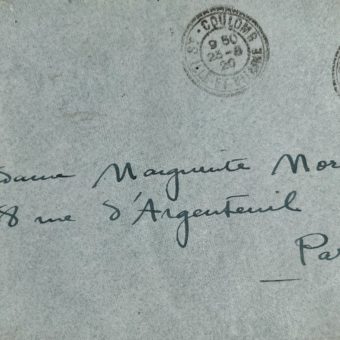 ST-COULOMB
9 50
23-8
20
dame Marguerite Mor
8 rue d'Argenteuil
Pa